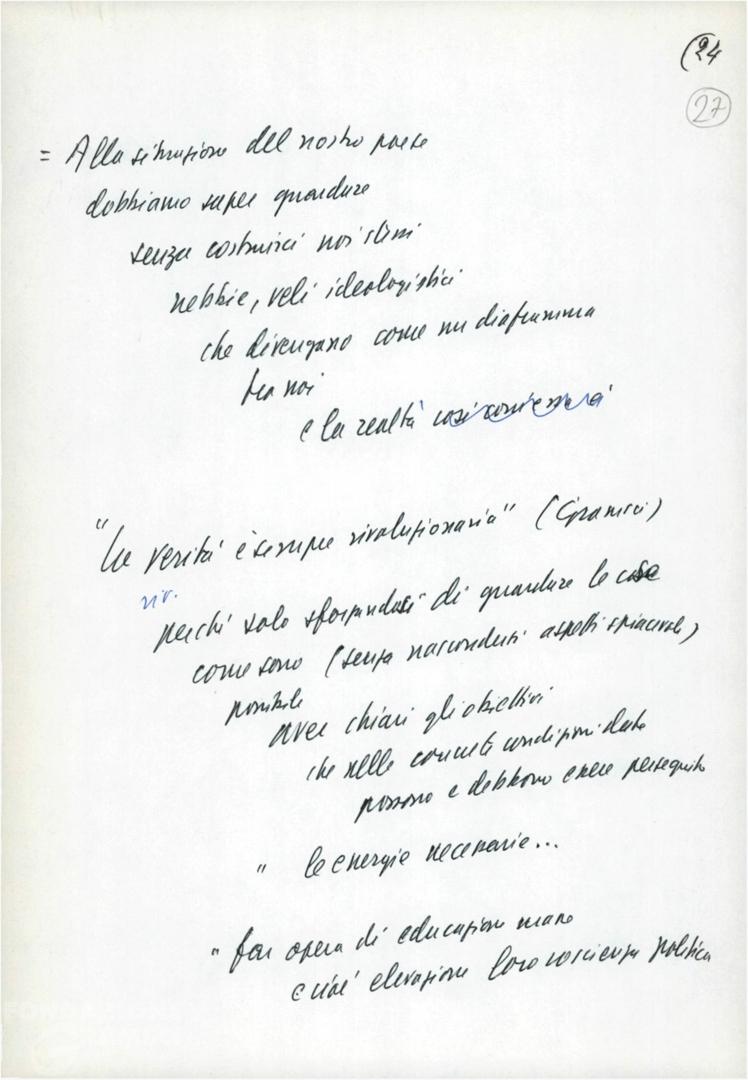 (24
27
= Alla situazione del nostro paese
dobbiamo saper guardare
senza costruirci noi stessi
nebbie, veli ideologistici
che divengano come un diaframma
tra noi
e la realtà così com'essa è
"La verità è sempre rivoluzionaria" (Gramsci)
riv.
perché solo sforzandosi di guardare le cose
come sono (senza nascondersi aspetti spiacevoli)
possibile
aver chiari gli obiettivi
che nelle concrete condizioni date
possono e debbono essere perseguiti
" le energie necessarie...
" far opera di educazione masse
e cioè elevazione loro coscienza politica